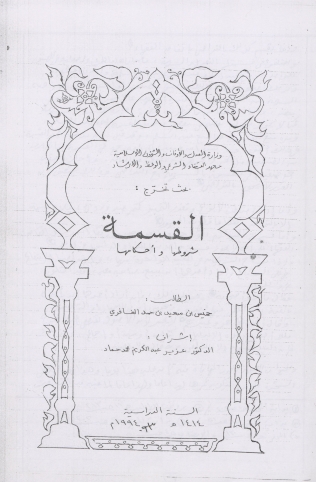 وزارة العدل والأوقاف والشئون الإسلامية
معهد القضاء الشرعي والوعظ والإرشاد
بحث تخرج :
القسمة
شروطها وأحكامها
الطالب :
خميس بن سعيد بن حمد الغافري
إشراف :
الدكتور عزيز عبدالكريم محمد حماد
السنة الدراسية
١٤١٤ هـ ١٩٩٤م